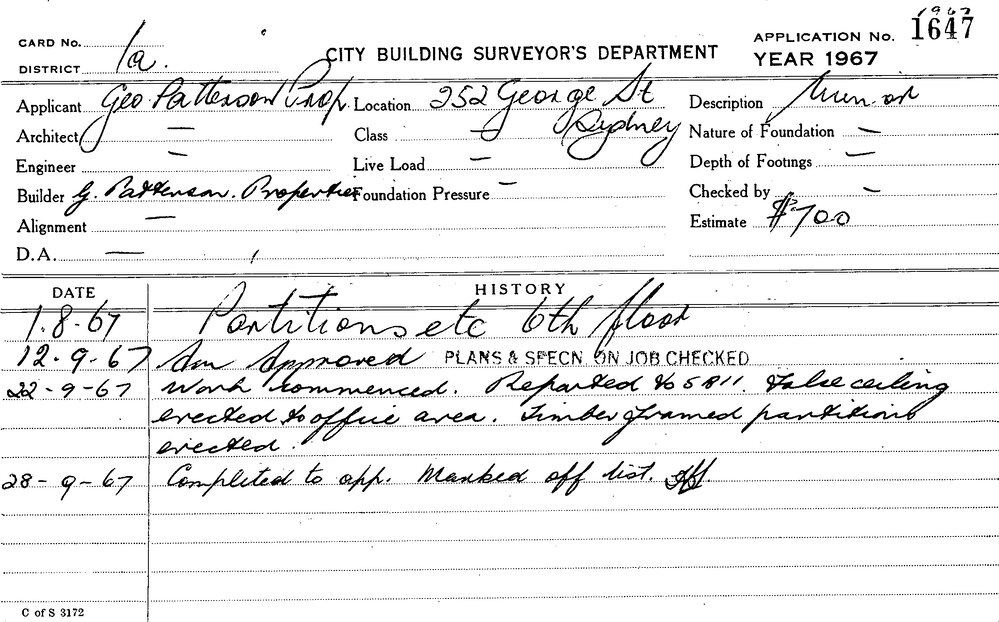 1967
CARD No. APPLICATION No. 1647
DISTRICT 1a. CITY BUILDING SURVEYOR'S DEPARTMENT YEAR 1967
Applicant Geo. Patterson Prop. Location 252 George St Description
Sydney
Architect — Class — Nature of Foundation —
Engineer — Live Load — Depth of Footings —
Builder G. Patterson. Properties Foundation Pressure — Checked by —
Alignment — Estimate $700
D.A. —
DATE HISTORY
1.8.67 Partitions etc 6th floor
12-9-67 Approved PLANS & SPECN. ON JOB CHECKED
22-9-67 Work commenced. Reported to False ceiling
erected to office area. Timber framed partitions
erected.
28-9-67 Completed to app. Marked off list.
C of S 3172